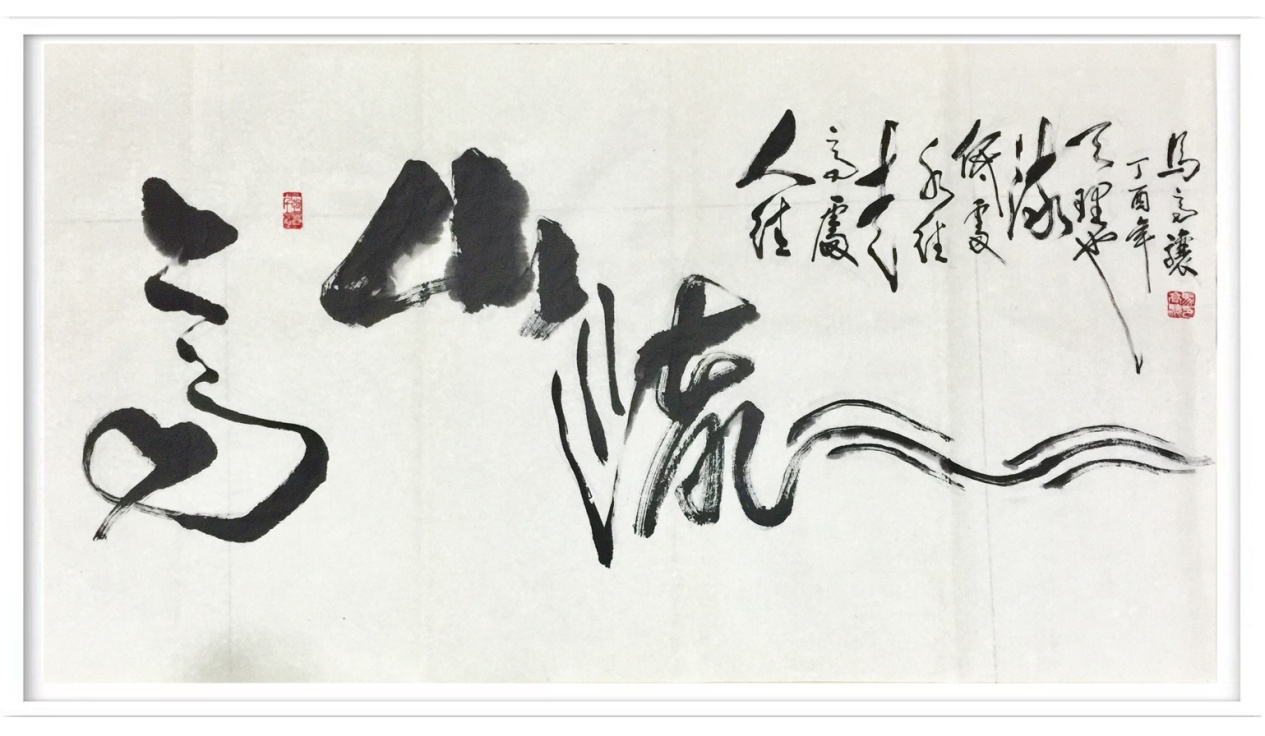 高山流
人往
高處
走
水往
低處
流
天理也
丁酉年
馬高驤